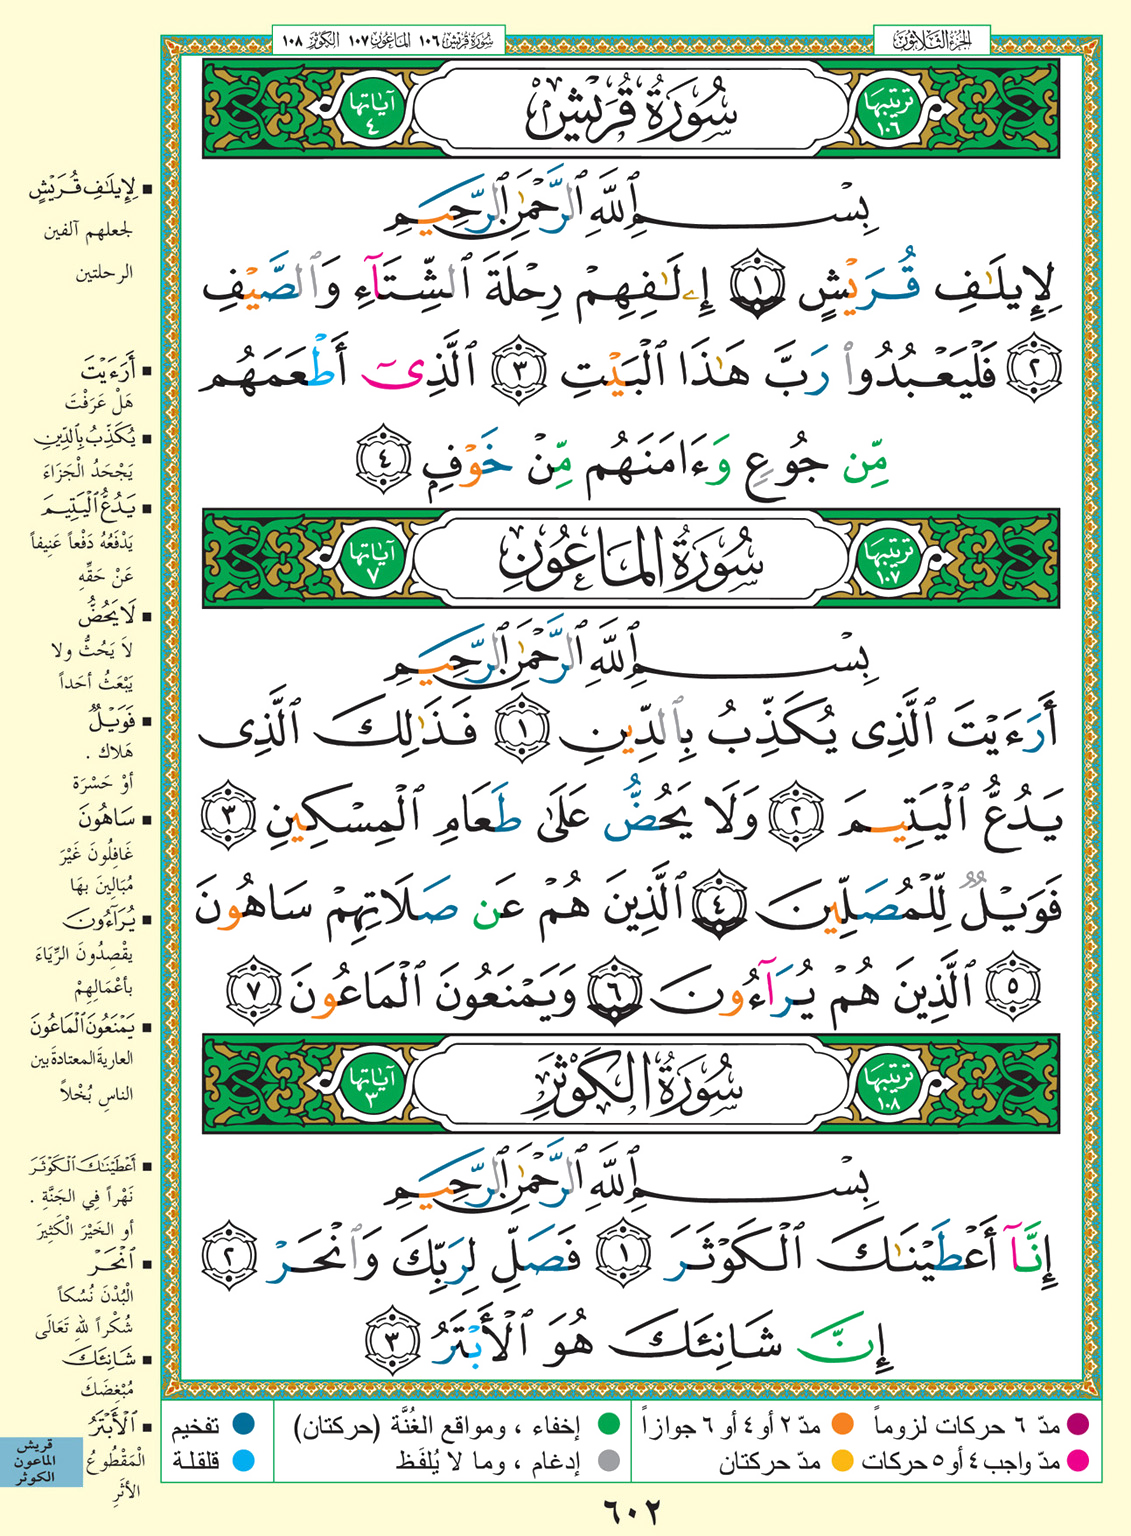 الجزء الثلاثون
سورة قريش ١٠٦ الماعون ١٠٧ الكوثر ١٠٨
ترتيبها ١٠٦
سُورَةُ قُرَيْشٍ
آياتها ٤
بِسْمِ ٱللَّهِ ٱلرَّحْمَٰنِ ٱلرَّحِيمِ
لِإِيلَٰفِ قُرَيْشٍ ١ إِۦلَٰفِهِمْ رِحْلَةَ ٱلشِّتَآءِ وَٱلصَّيْفِ
٢ فَلْيَعْبُدُوا۟ رَبَّ هَٰذَا ٱلْبَيْتِ ٣ ٱلَّذِىٓ أَطْعَمَهُم
مِّن جُوعٍ وَءَامَنَهُم مِّنْ خَوْفٍۭ ٤
ترتيبها ١٠٧
سُورَةُ الْمَاعُونِ
آياتها ٧
بِسْمِ ٱللَّهِ ٱلرَّحْمَٰنِ ٱلرَّحِيمِ
أَرَءَيْتَ ٱلَّذِى يُكَذِّبُ بِٱلدِّينِ ١ فَذَٰلِكَ ٱلَّذِى
يَدُعُّ ٱلْيَتِيمَ ٢ وَلَا يَحُضُّ عَلَىٰ طَعَامِ ٱلْمِسْكِينِ ٣
فَوَيْلٌ لِّلْمُصَلِّينَ ٤ ٱلَّذِينَ هُمْ عَن صَلَاتِهِمْ سَاهُونَ
٥ ٱلَّذِينَ هُمْ يُرَآءُونَ ٦ وَيَمْنَعُونَ ٱلْمَاعُونَ ٧
ترتيبها ١٠٨
سُورَةُ الْكَوْثَرِ
آياتها ٣
بِسْمِ ٱللَّهِ ٱلرَّحْمَٰنِ ٱلرَّحِيمِ
إِنَّآ أَعْطَيْنَٰكَ ٱلْكَوْثَرَ ١ فَصَلِّ لِرَبِّكَ وَٱنْحَرْ ٢
إِنَّ شَانِئَكَ هُوَ ٱلْأَبْتَرُ ٣
■ لِإِيلَٰفِ قُرَيْشٍ
لجعلهم آلفين
الرحلتين
■ أَرَءَيْتَ
هَلْ عَرَفْتَ
■ يُكَذِّبُ بِٱلدِّينِ
يَجْحَدُ الْجَزَاءَ
■ يَدُعُّ ٱلْيَتِيمَ
يَدْفَعُهُ دَفْعاً عَنِيفاً
عَنْ حَقِّهِ
■ لَا يَحُضُّ
لاَ يَحُثُّ ولا
يَبْعَثُ أحَداً
■ فَوَيْلٌ
هَلاك .
أوْ حَسْرَة
■ سَاهُونَ
غَافِلُونَ غَيْرَ
مُبَالِينَ بهَا
■ يُرَآءُونَ
يقْصِدُونَ الرِّيَاءَ
بأعْمَالِهِمْ
■ يَمْنَعُونَ ٱلْمَاعُونَ
العارية المعتادة بين
الناسِ بُخْلاً
■ أَعْطَيْنَٰكَ ٱلْكَوْثَرَ
نَهْراً فِي الجَنَّةِ .
أو الخَيْرَ الْكَثِيرَ
■ ٱنْحَرْ
الْبُدْنَ نُسُكاً
شُكْراً للهِ تَعَالَى
■ شَانِئَكَ
مُبْغِضَكَ
■ ٱلْأَبْتَرُ
الْمَقْطُوعُ
الأثَرِ
قريش
الماعون
الكوثر
مدّ ٦ حركات لزوماً
مدّ ٢ أو ٤ أو ٦ جوازاً
إخفاء ، ومواقع الغُنَّة (حركتان)
تفخيم
مدّ واجب ٤ أو ٥ حركات
مدّ حركتان
إدغام ، وما لا يُلفَظ
قلقلة
٦٠٢